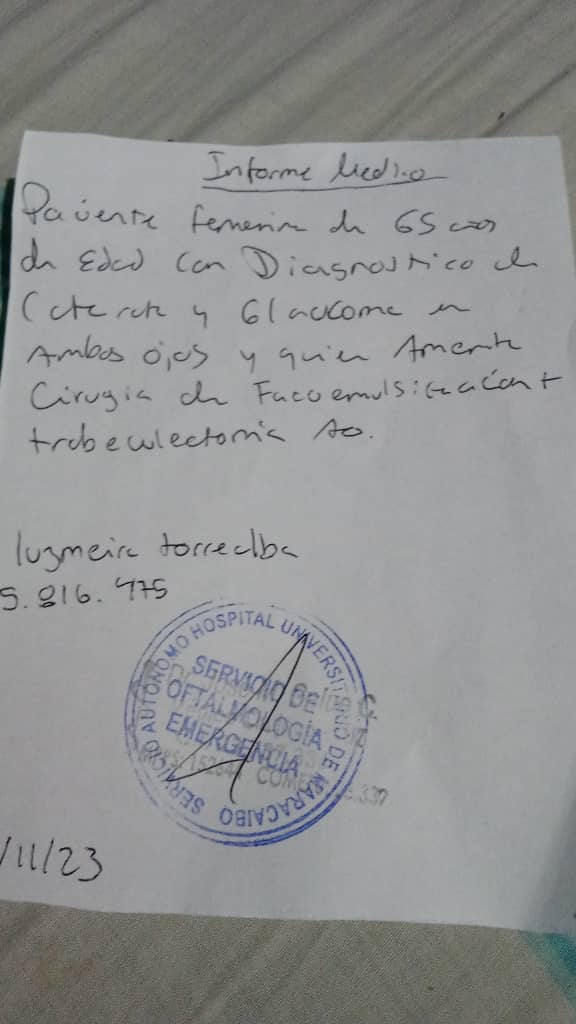 Informe Medico
Paciente femenina de 65 años
de Edad con Diagnostico de
Catarata y Glaucoma en
Ambos ojos y quien Amerita
Cirugia de Facoemulsificación +
trabeculectomia AO.
luzmeira torrealba
5.816.475
SERVICIO AUTONOMO HOSPITAL UNIVERSITARIO DE MARACAIBO
SERVICIO DE
OFTALMOLOGÍA
EMERGENCIA
/11/23